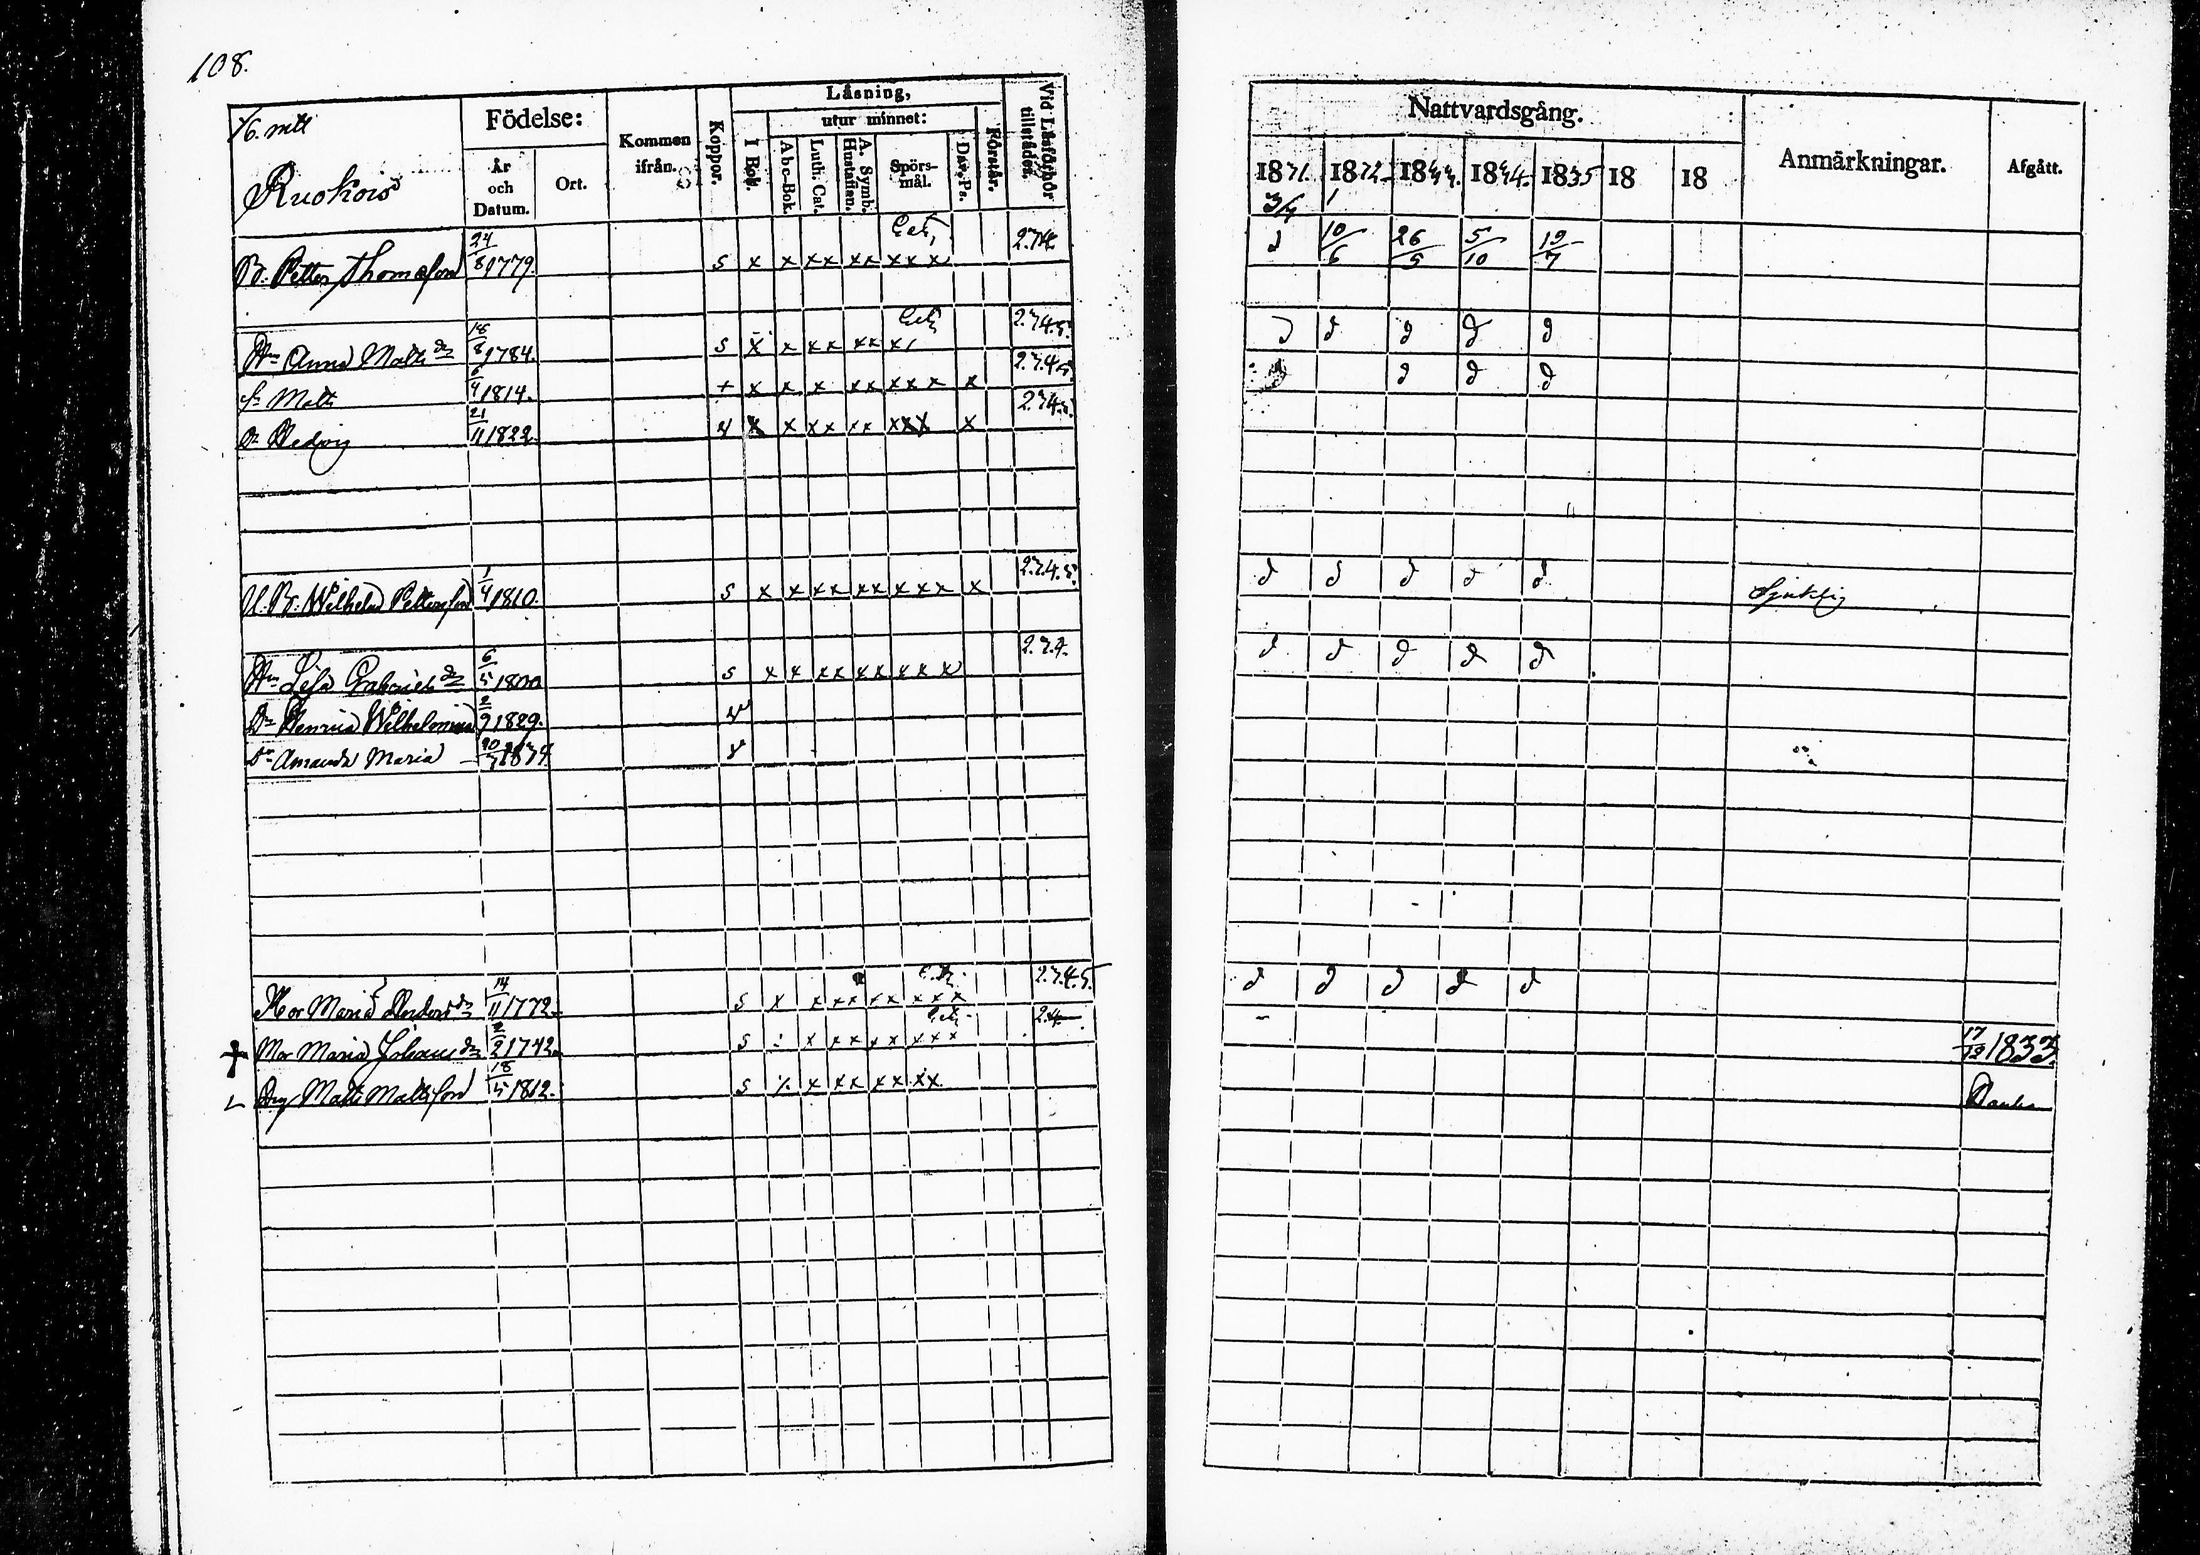 108.
1/6. mtl
Ruokois
Födelse:
År och Datum.
Ort.
Kommen ifrån.
Koppor.
Läsning,
utur minnet:
I Bok.
Abc-Bok.
Luth. Cat.
A. Symb. Hustaflan.
Spörsmål.
Dav. Ps.
Förstår.
Vid Läsförhör tillstädes.
Nattvardsgång.
1831. 1832. 1833. 1834. 1835 18 18
Anmärkningar.
Afgått.
B. Petter Thomasson 24/8 1779. s x x xx xx xxx 2.3.4. 10/6 26/5 5/10 19/7
Hu Anna Matts dr 18/8 1784. s x x xx xx x 2.3.4.5. d d d d
Sn Matts 6/4 1814. + x x x xx xxx x 2.3.4.5. d d d
Dr Hedvig 21/11 1822. x x xx xx xxx x 2.3.4.5.
U. B. Wilhelm Pettersson 1/4 1810. s x x xx xx xxx x 2.3.4.5. d d d d d Sjuklig
Hu Lisa Gabriels dr 6/5 1800 s x x xx xx xxx 2.3.4. d d d d d
Dr Henrica Wilhelmina 2/9 1829. v
Dr Amanda Maria 1834 v
Mor Maria Anders dr 14/11 1772. s x x xxx xx xxx 2.3.4.5 d d d d d
Mor Maria Johans dr 2/2 1742. s x xx xx xxx 2.4. 17/12 1833.
Drg Matts Mattsson 18/5 1812. s x xx xx xx